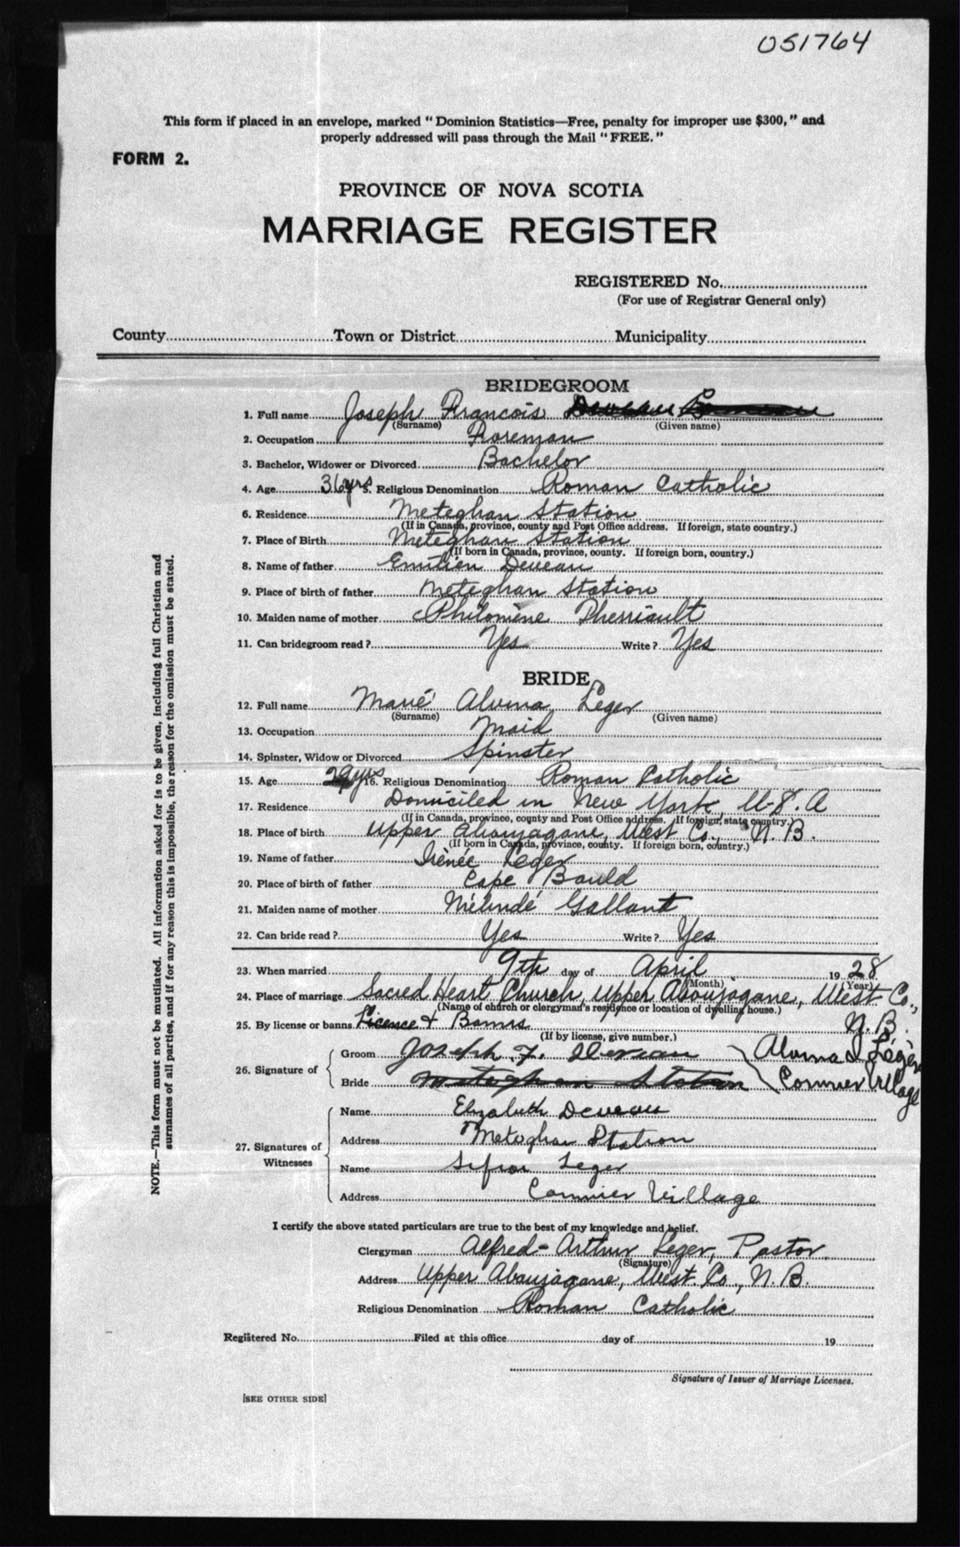 051764
This form if placed in an envelope, marked "Dominion Statistics—Free, penalty for improper use $300," and
properly addressed will pass through the Mail "FREE."
FORM 2.
PROVINCE OF NOVA SCOTIA
MARRIAGE REGISTER
REGISTERED No.
(For use of Registrar General only)
County Town or District Municipality
BRIDEGROOM
1. Full name Joseph Francois
(Surname) (Given name)
2. Occupation Foreman
3. Bachelor, Widower or Divorced Bachelor
4. Age 36yrs 5. Religious Denomination Roman Catholic
6. Residence Meteghan Station
(If in Canada, province, county and Post Office address. If foreign, state country.)
7. Place of Birth Meteghan Station
(If born in Canada, province, county. If foreign born, country.)
8. Name of father Emilien Deveau
9. Place of birth of father Meteghan Station
10. Maiden name of mother Philomène Therriault
11. Can bridegroom read? Yes Write? Yes
BRIDE
12. Full name Marie Alvina Leger
(Surname) (Given name)
13. Occupation Maid
14. Spinster, Widow or Divorced Spinster
15. Age 29yrs 16. Religious Denomination Roman Catholic
17. Residence Domiciled in New York, U.S.A
(If in Canada, province, county and Post Office address. If foreign, state country.)
18. Place of birth Upper Aboujagane, West Co., N.B.
(If born in Canada, province, county. If foreign born, country.)
19. Name of father Irénée Leger
20. Place of birth of father Cape Bauld
21. Maiden name of mother Gallant
22. Can bride read? Yes Write? Yes
23. When married 9th day of April 1928
(Month) (Year)
24. Place of marriage Sacred Heart Church, Upper Aboujagane, West Co.,
(Name of church or clergyman's residence or location of dwelling house.)
N.B.
25. By license or banns Licence & Banns
(If by license, give number.)
26. Signature of Groom Joseph F. Alvina Légère
Bride Meteghan Station Cormier Village
27. Signatures of Witnesses
Name Elizabeth Deveau
Address Meteghan Station
Name Leger
Address Cormier Village
I certify the above stated particulars are true to the best of my knowledge and belief.
Clergyman Alfred-Arthur Leger, Pastor
(Signature)
Address Upper Aboujagane, West. Co., N.B.
Religious Denomination Roman Catholic
Registered No. Filed at this office day of 19
Signature of Issuer of Marriage Licenses.
[SEE OTHER SIDE]
NOTE.—This form must not be mutilated. All information asked for is to be given, including full Christian and
surnames of all parties, and if for any reason this is impossible, the reason for the omission must be stated.